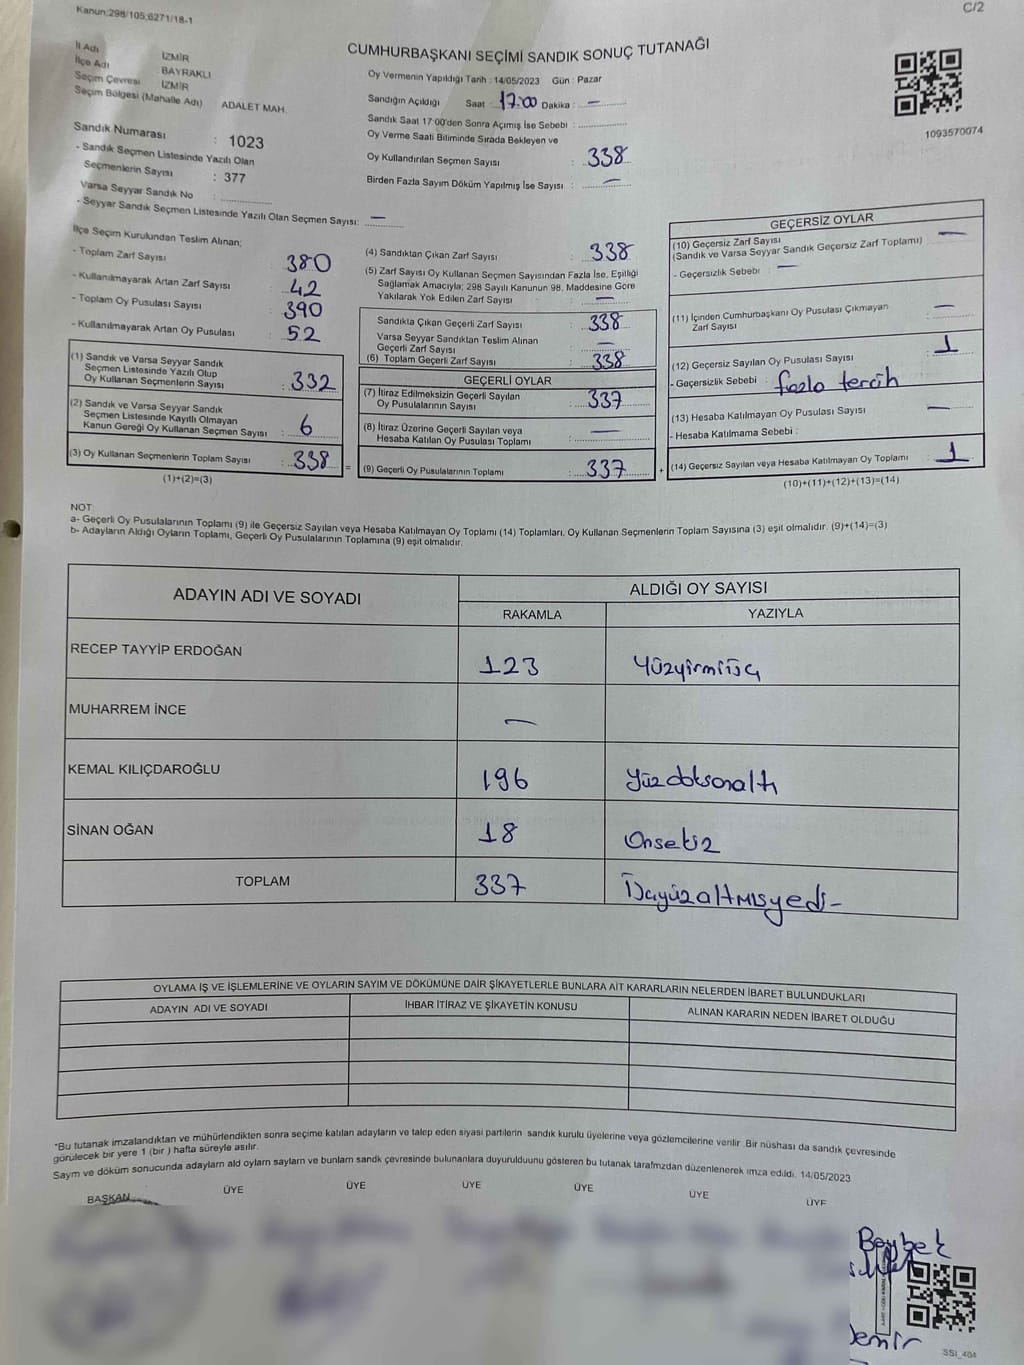 Kanun:298/105,6271/18-1
C/2
CUMHURBAŞKANI SEÇİMİ SANDIK SONUÇ TUTANAĞI
İl Adı İZMİR
İlçe Adı : BAYRAKLI
Seçim Çevresi İZMİR
Seçim Bölgesi (Mahalle Adı) ADALET MAH.
Sandık Numarası : 1023
- Sandık Seçmen Listesinde Yazılı Olan
Seçmenlerin Sayısı : 377
Varsa Seyyar Sandık No :
- Seyyar Sandık Seçmen Listesinde Yazılı Olan Seçmen Sayısı: —
Oy Vermenin Yapıldığı Tarih : 14/05/2023 Gün : Pazar
Sandığın Açıldığı Saat : 17:00 Dakika : —
Sandık Saat 17:00'den Sonra Açımış İse Sebebi :
Oy Verme Saati Bitiminde Sırada Bekleyen ve
Oy Kullandırılan Seçmen Sayısı : 338
Birden Fazla Sayım Döküm Yapılmış İse Sayısı : —
1093570074
İlçe Seçim Kurulundan Teslim Alınan;
- Toplam Zarf Sayısı : 380
- Kullanılmayarak Artan Zarf Sayısı : 42
- Toplam Oy Pusulası Sayısı : 390
- Kullanılmayarak Artan Oy Pusulası : 52
(1) Sandık ve Varsa Seyyar Sandık
Seçmen Listesinde Yazılı Olup
Oy Kullanan Seçmenlerin Sayısı : 332
(2) Sandık ve Varsa Seyyar Sandık
Seçmen Listesinde Kayıtlı Olmayan
Kanun Gereği Oy Kullanan Seçmen Sayısı : 6
(3) Oy Kullanan Seçmenlerin Toplam Sayısı : 338
(1)+(2)=(3)
=
(4) Sandıktan Çıkan Zarf Sayısı : 338
(5) Zarf Sayısı Oy Kullanan Seçmen Sayısından Fazla İse, Eşitliği
Sağlamak Amacıyla; 298 Sayılı Kanunun 98. Maddesine Göre
Yakılarak Yok Edilen Zarf Sayısı : —
Sandıkta Çıkan Geçerli Zarf Sayısı : 338
Varsa Seyyar Sandıktan Teslim Alınan
Geçerli Zarf Sayısı : —
(6) Toplam Geçerli Zarf Sayısı : 338
GEÇERLİ OYLAR
(7) İtiraz Edilmeksizin Geçerli Sayılan
Oy Pusulalarının Sayısı : 337
(8) İtiraz Üzerine Geçerli Sayılan veya
Hesaba Katılan Oy Pusulası Toplamı : —
(9) Geçerli Oy Pusulalarının Toplamı : 337
+
GEÇERSİZ OYLAR
(10) Geçersiz Zarf Sayısı
(Sandık ve Varsa Seyyar Sandık Geçersiz Zarf Toplamı) —
- Geçersizlik Sebebi : —
(11) İçinden Cumhurbaşkanı Oy Pusulası Çıkmayan
Zarf Sayısı : —
(12) Geçersiz Sayılan Oy Pusulası Sayısı : 1
- Geçersizlik Sebebi : fazla tercih
(13) Hesaba Katılmayan Oy Pusulası Sayısı : —
- Hesaba Katılmama Sebebi :
(14) Geçersiz Sayılan veya Hesaba Katılmayan Oy Toplamı : 1
(10)+(11)+(12)+(13)=(14)
NOT:
a- Geçerli Oy Pusulalarının Toplamı (9) ile Geçersiz Sayılan veya Hesaba Katılmayan Oy Toplamı (14) Toplamları, Oy Kullanan Seçmenlerin Toplam Sayısına (3) eşit olmalıdır. (9)+(14)=(3)
b- Adayların Aldığı Oyların Toplamı, Geçerli Oy Pusulalarının Toplamına (9) eşit olmalıdır.
ADAYIN ADI VE SOYADI ALDIĞI OY SAYISI
RAKAMLA YAZIYLA
RECEP TAYYİP ERDOĞAN 123 Yüzyirmiüç
MUHARREM İNCE —
KEMAL KILIÇDAROĞLU 196 Yüzdoksanaltı
SİNAN OĞAN 18 Onsekiz
TOPLAM 337 Üçyüzaltmışyedi-
OYLAMA İŞ VE İŞLEMLERİNE VE OYLARIN SAYIM VE DÖKÜMÜNE DAİR ŞİKAYETLERLE BUNLARA AİT KARARLARIN NELERDEN İBARET BULUNDUKLARI
ADAYIN ADI VE SOYADI İHBAR İTİRAZ VE ŞİKAYETİN KONUSU ALINAN KARARIN NEDEN İBARET OLDUĞU
*Bu tutanak imzalandıktan ve mühürlendikten sonra seçime katılan adayların ve talep eden siyasi partilerin sandık kurulu üyelerine veya gözlemcilerine verilir .Bir nüshası da sandık çevresinde
görülecek bir yere 1 (bir ) hafta süreyle asılır.
Saym ve döküm sonucunda adaylarn ald oylarn saylarn ve bunlarn sandk çevresinde bulunanlara duyurulduunu gösteren bu tutanak tarafmzdan düzenlenerek imza edildi. 14/05/2023
BAŞKAN ÜYE ÜYE ÜYE ÜYE ÜYE ÜYE
Beybek
Demir
SSI_404